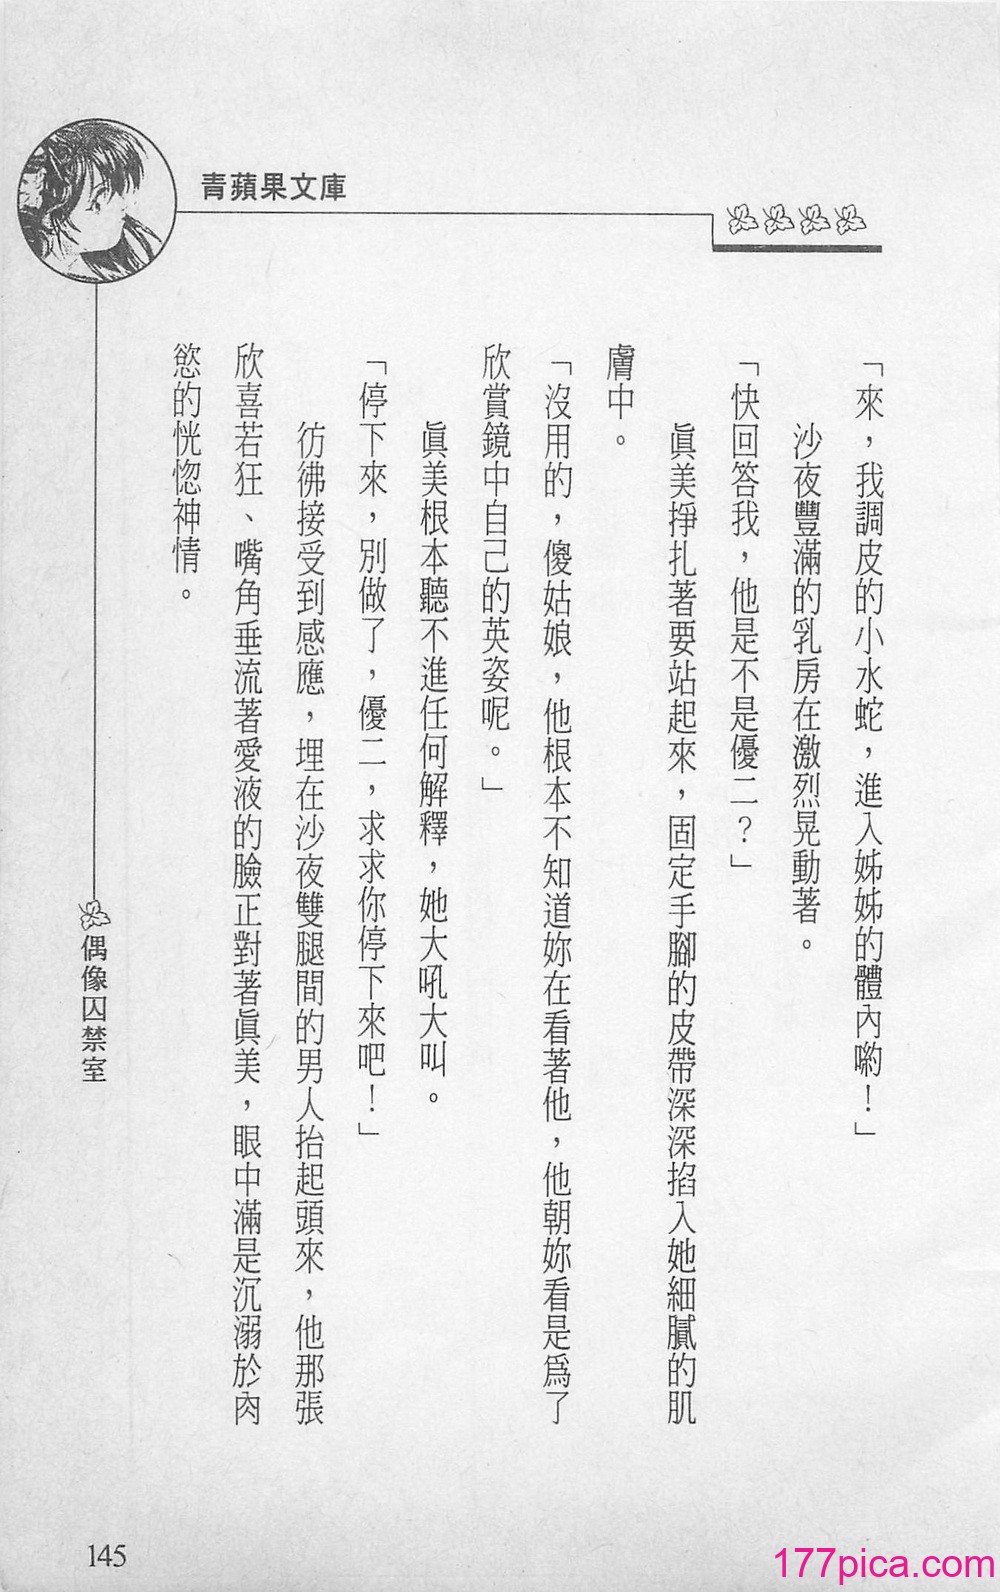 青蘋果文庫
「來，我調皮的小水蛇，進入姊姊的體內喲！」
沙夜豐滿的乳房在激烈晃動著。
「快回答我，他是不是優二？」
眞美掙扎著要站起來，固定手腳的皮帶深深掐入她細膩的肌
膚中。
「沒用的，傻姑娘，他根本不知道妳在看著他，他朝妳看是爲了
欣賞鏡中自己的英姿呢。」
眞美根本聽不進任何解釋，她大吼大叫。
「停下來，別做了，優二，求求你停下來吧！」
彷彿接受到感應，埋在沙夜雙腿間的男人抬起頭來，他那張
欣喜若狂、嘴角垂流著愛液的臉正對著眞美，眼中滿是沉溺於肉
慾的恍惚神情。
偶像囚禁室
145
177pica.com